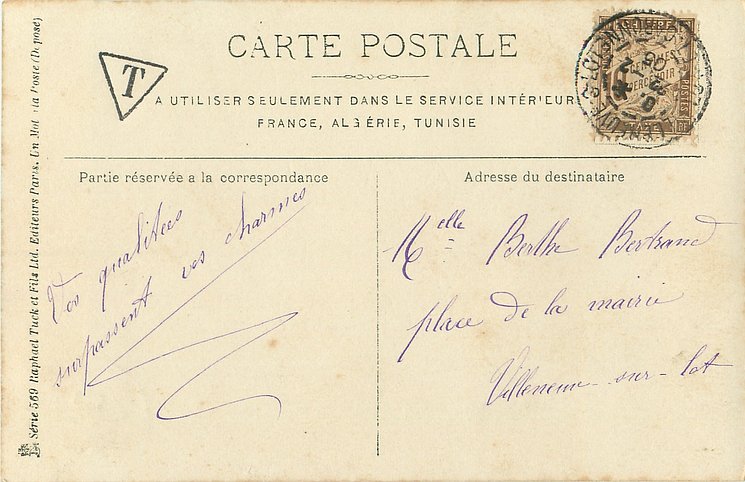 CARTE POSTALE
T
A UTILISER SEULEMENT DANS LE SERVICE INTÉRIEUR
FRANCE, ALGÉRIE, TUNISIE
Partie réservée a la correspondance
Vos qualitées
surpassent vos charmes
Adresse du destinataire
Melle Berthe Bertrand
place de la mairie
Villeneuve-sur-lot
Série 569 Raphael Tuck et Fils Ltd. Editeurs Paris. Un Mot à la Poste (Déposé)